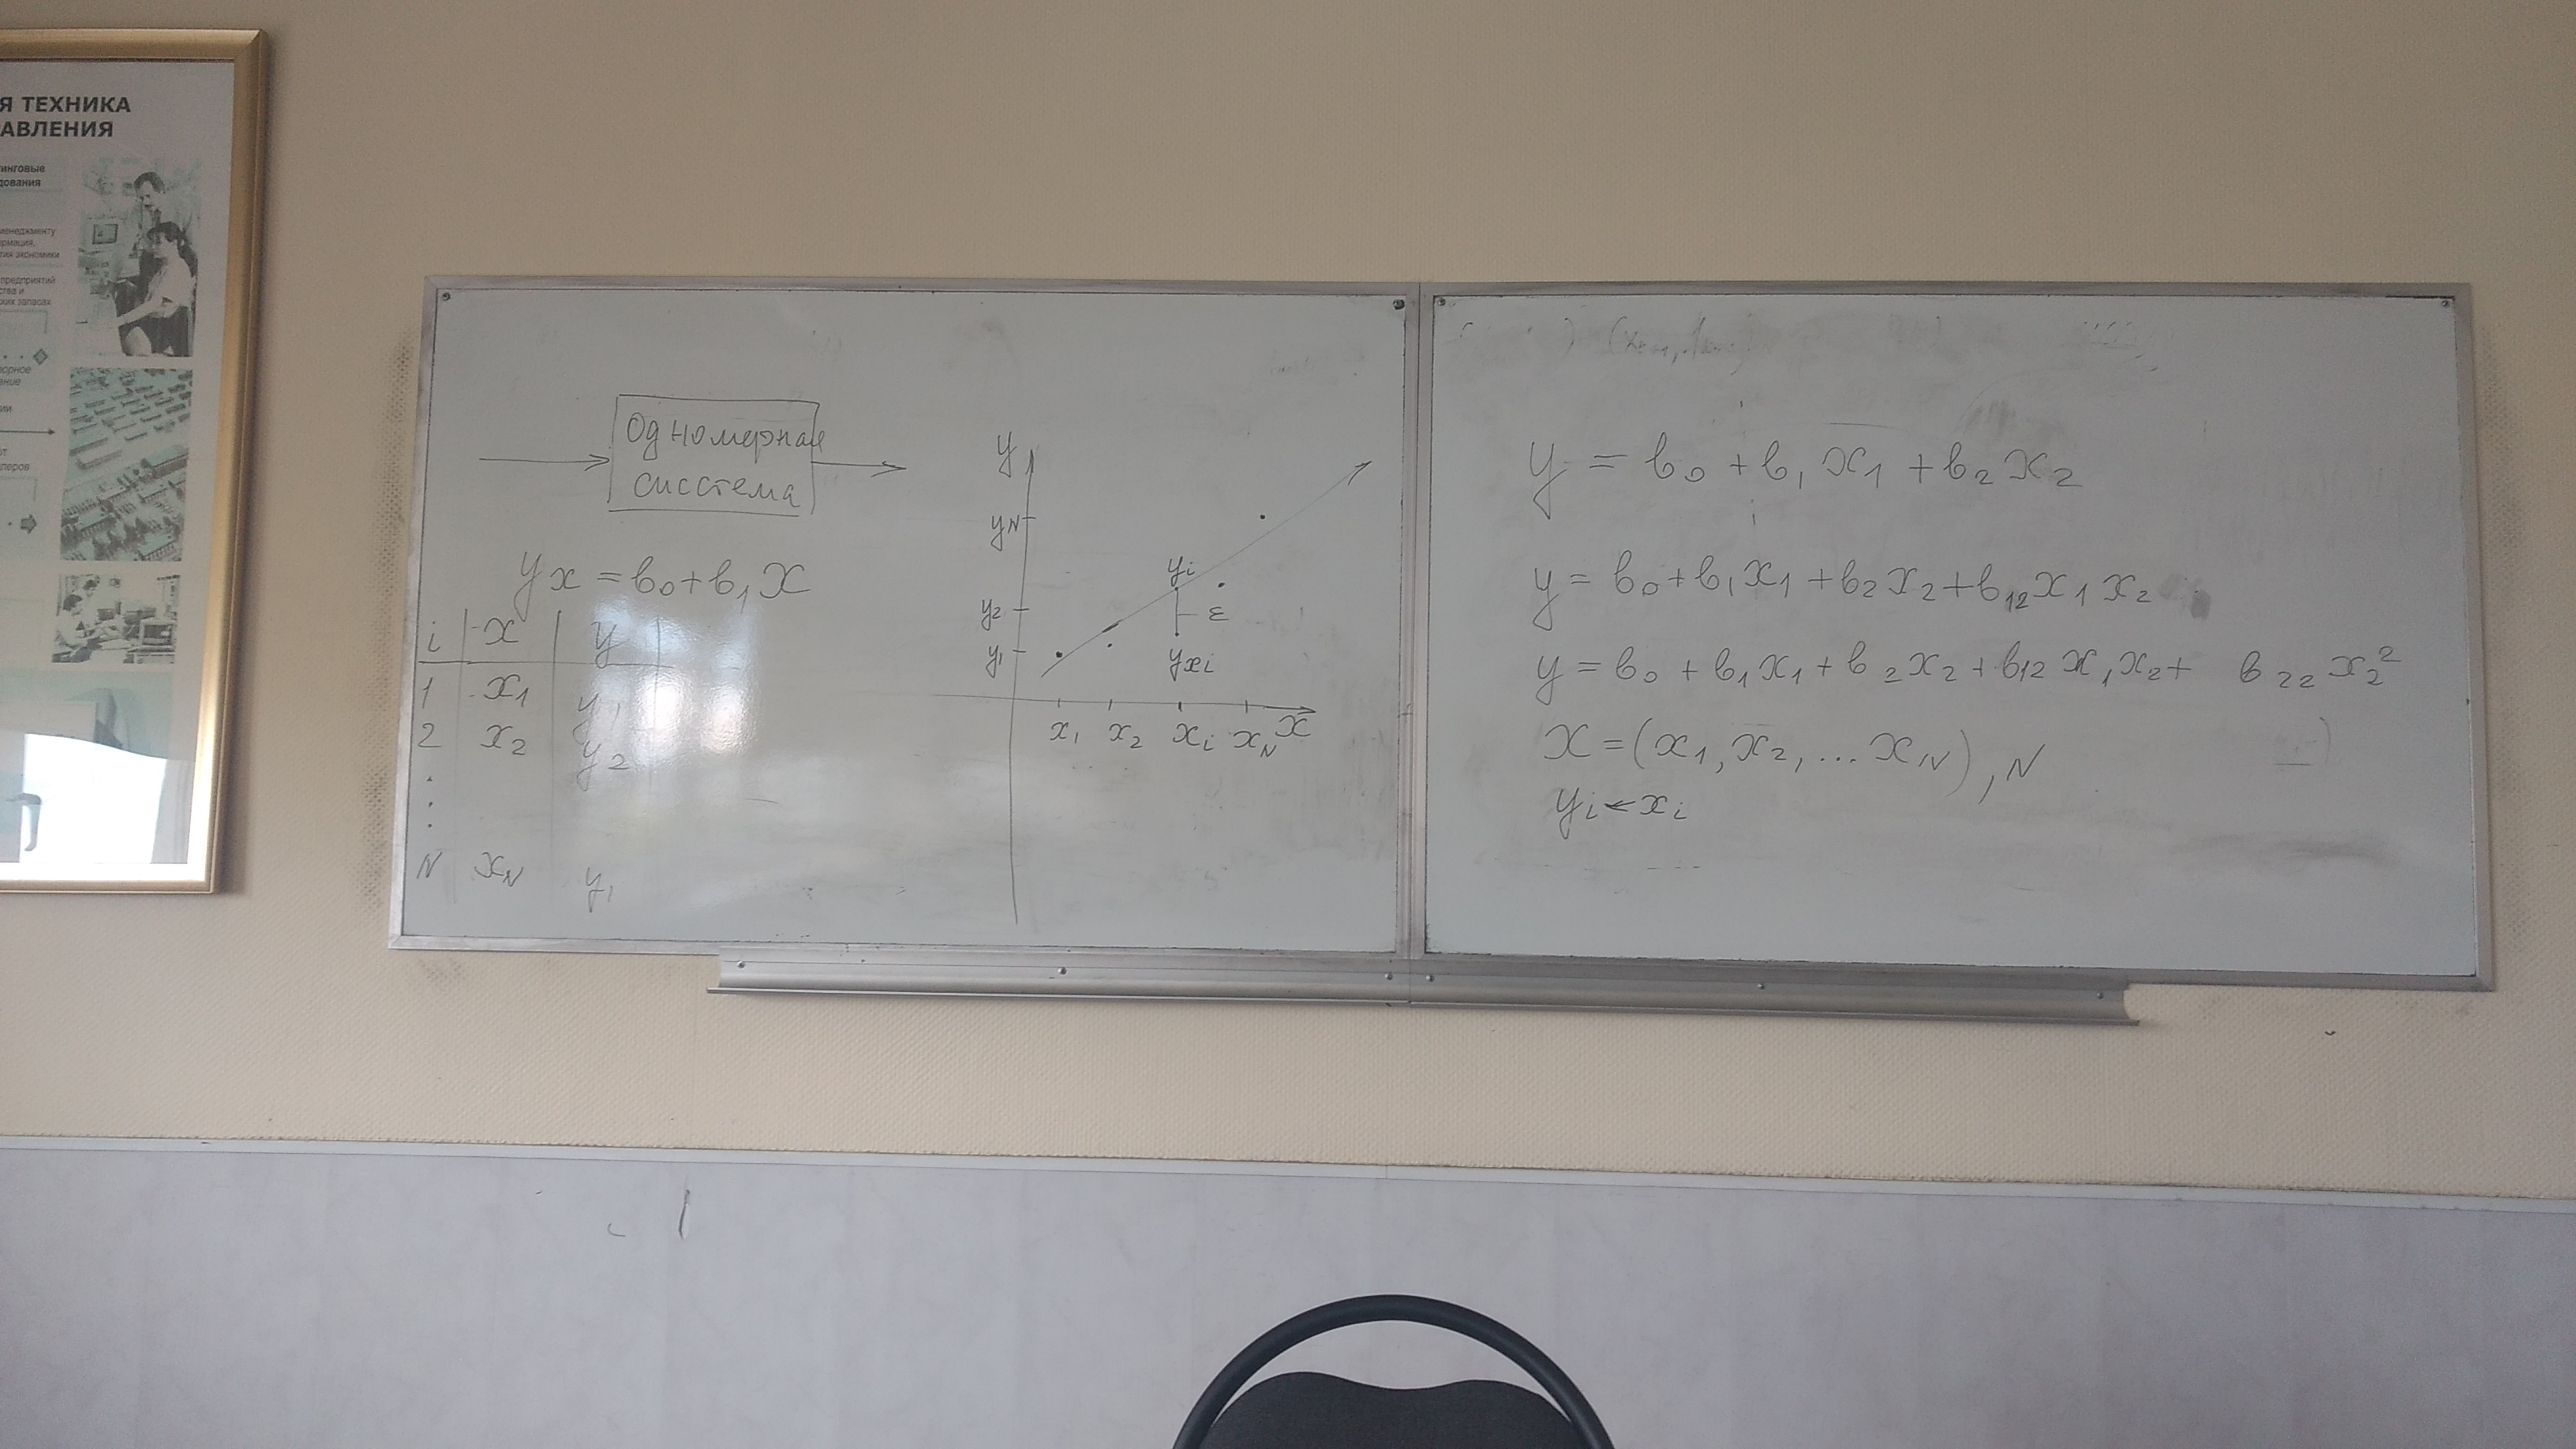 Я ТЕХНИКА
РАВЛЕНИЯ
тинговые
дования
менеджменту
ормация,
тия экономики
предприятий
ства и
ских запасах
орное
ение
ии
от
леров
Одномерная
сисстема
yx = b0 + b1 x
i x y
1 x1 y1
2 x2 y2
.
.
.
N xN y1
y
yN
yi
y2
ε
y1
yxi
x1 x2 xi xN x
y = b0 + b1 x1 + b2 x2
y = b0 + b1 x1 + b2 x2 + b12 x1 x2
y = b0 + b1 x1 + b2 x2 + b12 x1 x2 + b22 x2²
x = (x1, x2, ... xN), N
yi ← xi